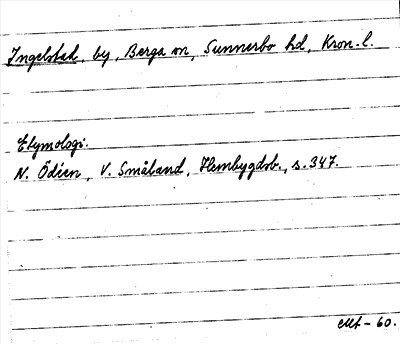 Ingelstad, by, Berga sn, Sunnerbo hd, Kron. l.
Etymologi.
N. Ödeen, V. Småland, Hembygdsb., s. 347.
- 60.